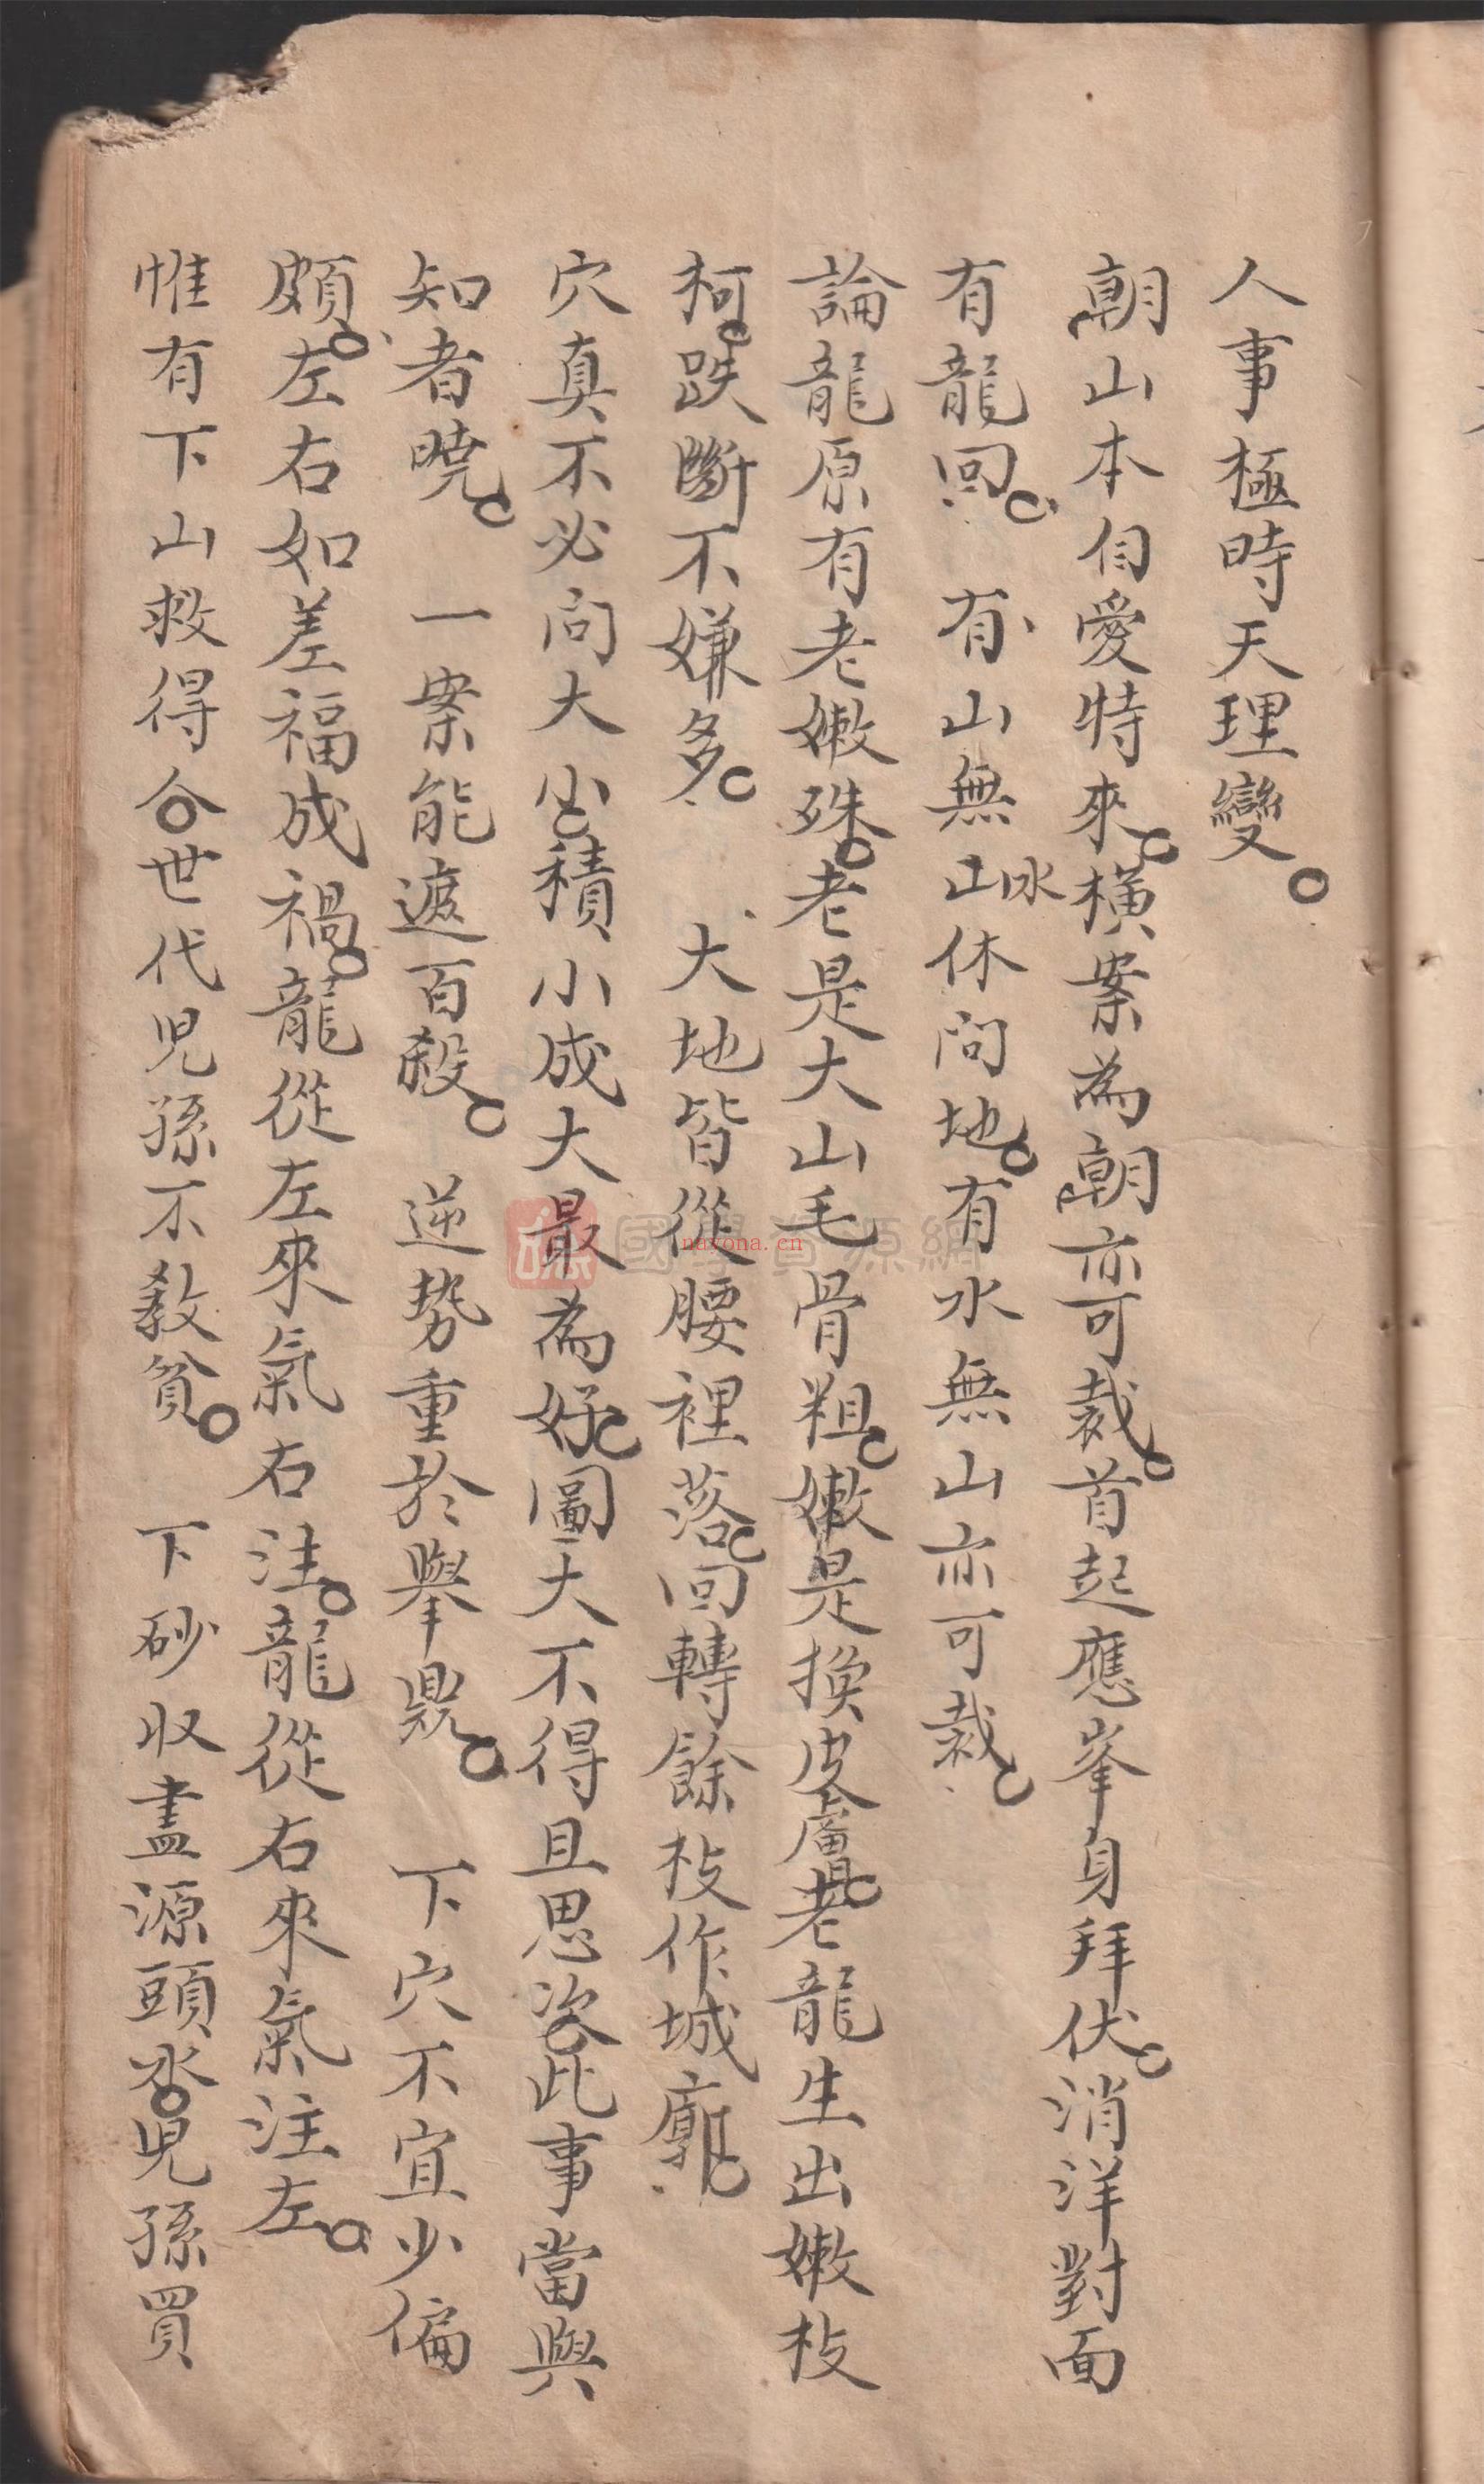 人事極時天理變。
朝山本自愛特來。橫案為朝亦可裁。首起應峯身拜伏。消洋對面
有龍回。 有山無山水休問地。有水無山亦可裁。
論龍原有老嫩殊。老是大山毛骨粗。嫩是換皮膚。老龍生出嫩枝
柯。跌斷不嫌多。 大地皆從腰裡落。回轉餘枝作城廓。
穴真不必问大小。積小成大最為好。圖大不得且思姿。此事當與
知者曉。 一案能遮百殺。 逆势重於舉鼎。 下穴不宜少偏
頗。左右如差福成禍。龍從左來氣右注。龍從右來氣注左。
惟有下山救得令。世代児孫不教貧。 下砂收盡源頭水。児孫買
國學資源網
nayona.cn